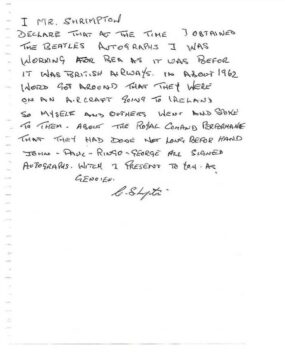 I MR. SHRIMPTON
DECLARE THAT AT THE TIME I OBTAINED
THE BEATLES AUTOGRAPHS I WAS
WORKING FOR BEA AS IT WAS BEFOR
IT WAS BRITISH AIRWAYS. IN ABOUT 1962
WORD GOT AROUND THAT THEY WERE
ON AN AIRCRAFT GOING TO IRELAND
SO MYSELF AND OUTHERS WENT AND SPOKE
TO THEM. ABOUT THE ROYAL COMAND PERFORMANCE
THAT THEY HAD DONE NOT LONG BEFOR HAND
JOHN - PAUL - RINGO - GEORGE ALL SIGNED
AUTOGRAPHS. WITCH I PRESENT TO YOU. AS